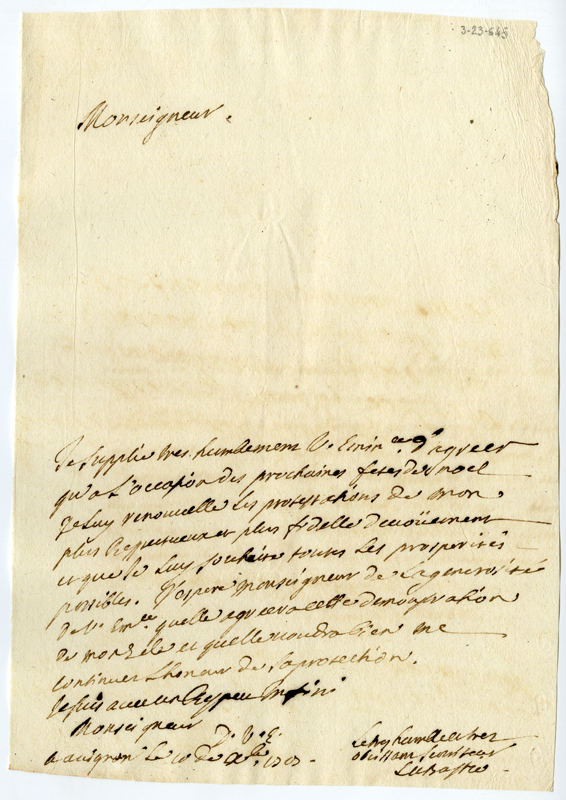 3-23-645
Monseigneur.
Je supplie tres humblement V. Emin.ce d'agreer
qu'a l'occasion des prochaines fetes de noel
Je luy renouvelle les protestations de mon
plus respectueux et plus fidelle devoüement
et que je luy souhaite toutes les prosperités
possibles. J'espere Monseigneur de la generosité
de V. Em.ce quelle agreera cette demonstration
de mon zele et quelle voudra bien me
continuer lhoneur de sa protection.
Je suis avec un respect infini
Monseigneur
D. V. E.
a avignon le 10 de
Le tres humble et tres
obeissant serviteur